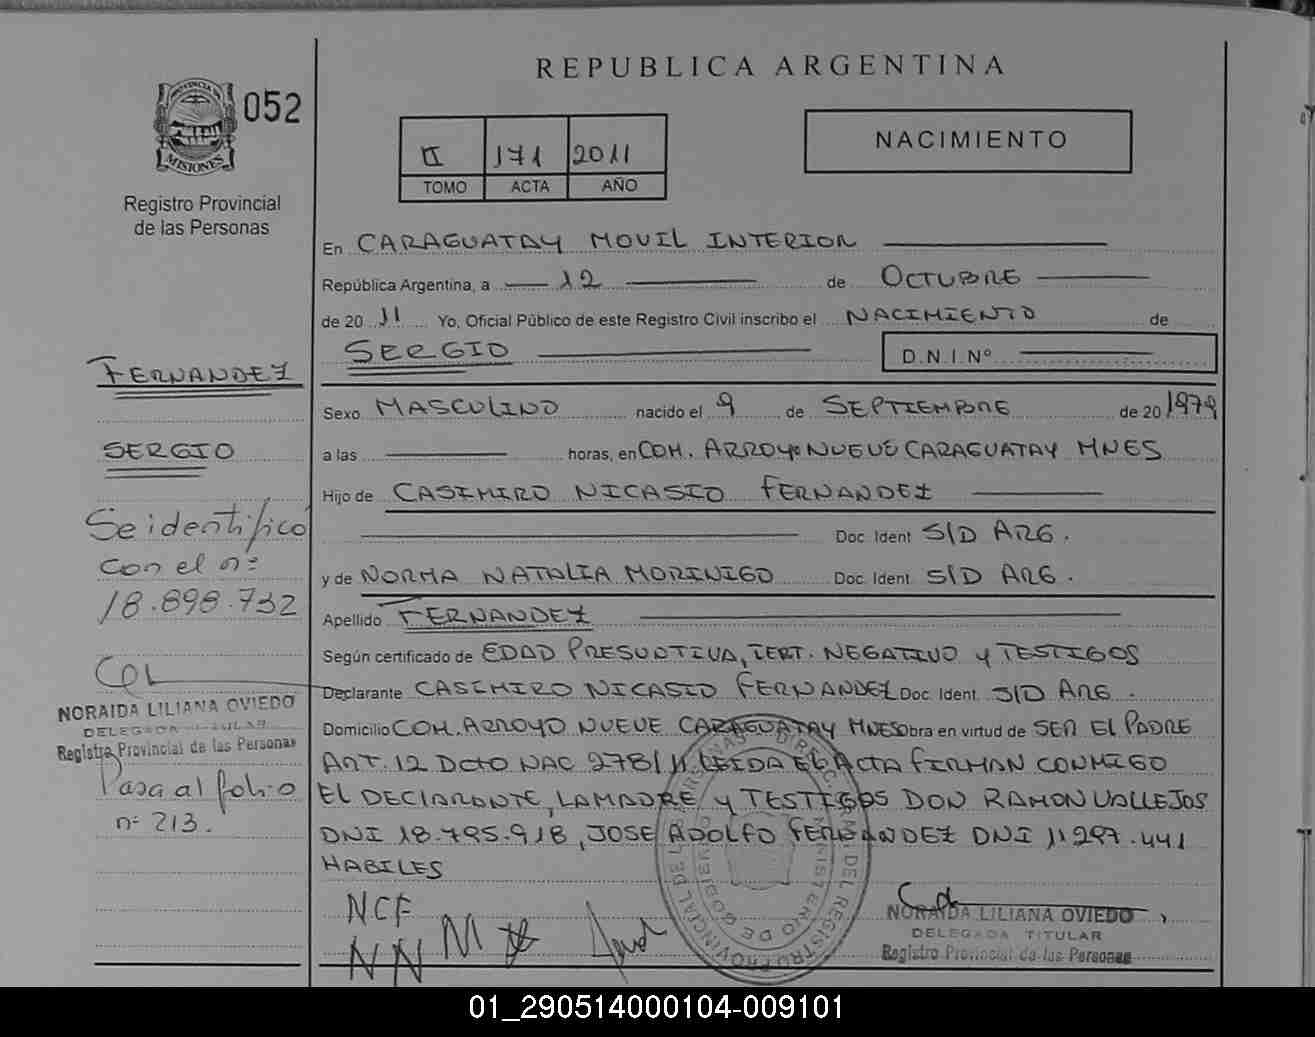 REPUBLICA ARGENTINA
PROVINCIA DE
MISIONES
052
Registro Provincial
de las Personas
II 171 2011
TOMO ACTA AÑO
NACIMIENTO
En CARAGUATAY MOVIL INTERIOR
República Argentina, a 12 de OCTUBRE
de 20 11 Yo, Oficial Público de este Registro Civil inscribo el NACIMIENTO de
SERGIO D.N.I.Nº
Sexo MASCULINO nacido el 9 de SEPTIEMBRE de 20 1979
a las horas, en COM. ARROYO NUEVE CARAGUATAY MNES
Hijo de CASIMIRO NICASIO FERNANDEZ
Doc. Ident S/D ARG.
y de NORMA NATALIA MORINIGO Doc. Ident. S/D ARG.
Apellido FERNANDEZ
Según certificado de EDAD PRESUNTIVA, CERT. NEGATIVO Y TESTIGOS
Declarante CASIMIRO NICASIO FERNANDEZ Doc. Ident. S/D ARG.
Domicilio COM. ARROYO NUEVE CARAGUATAY MNES Obra en virtud de SER EL PADRE
ART. 12 DCTO NAC 278/11 LEIDA EL ACTA FIRMAN CONMIGO
EL DECLARANTE, LA MADRE Y TESTIGOS DON RAMON VALLEJOS
DNI 18.795.918, JOSE ADOLFO FERNANDEZ DNI 11 297.441
HABILES
NCF
NN M
NORAIDA LILIANA OVIEDO
DELEGADA TITULAR
Registro Provincial de las Personas
FERNANDEZ
SERGIO
Se identificó
con el nº
18.898.732
NORAIDA LILIANA OVIEDO
DELEGADA TITULAR
Registro Provincial de las Personas
Pasa al folio
nº 213.
01_290514000104-009101